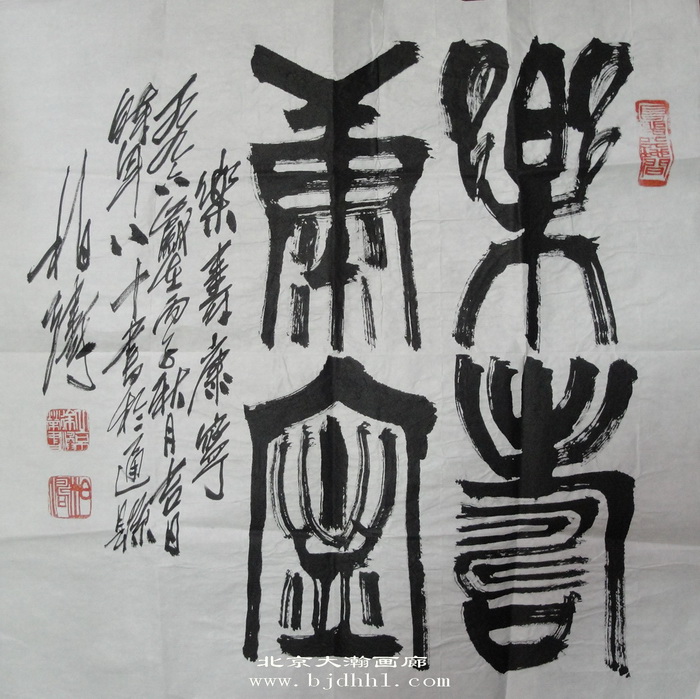 樂壽
康寧
樂壽康寧
一九九六歲在丙子秋月吉日
時年八十書於通縣
柏
北京大瀚画廊
www.bjdhhl.com